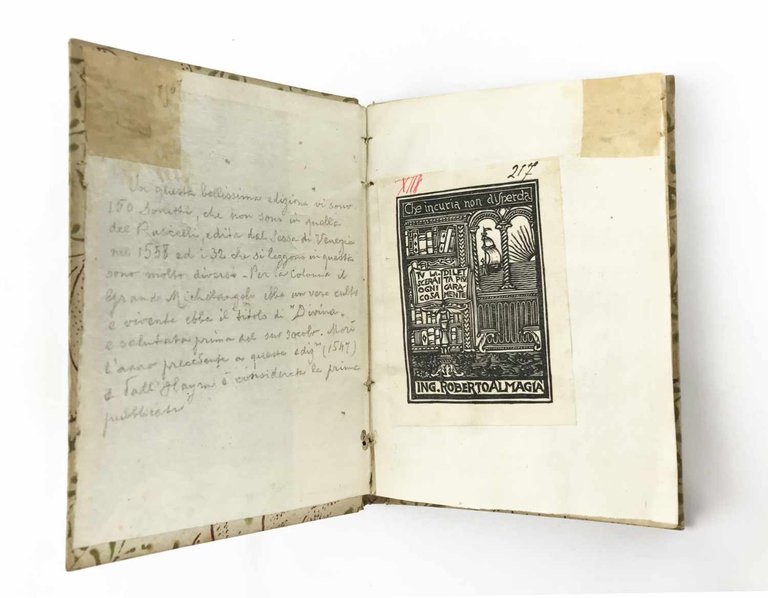 In questa bellissima edizione vi sono
150 Sonetti, che non sono in quella
del Ruscelli, edita dal Sessa di Venezia
nel 1558 ed i 32 che si leggono in questa
sono molto diversi - Per la Colonna il
Grande Michelangelo ebbe un vero culto
e vivente ebbe il titolo di "Divina"
e salutata prima del suo secolo. Morì
l'anno precedente a questa ediz. (1547)
e dall'Haym è considerata la prima
pubblicata
XIII
217
Che incuria non disperda
TV LA
SCERAI
OGNI
COSA
DILET
TA PIV
CARA
MENTE
ING. ROBERTO ALMAGIA